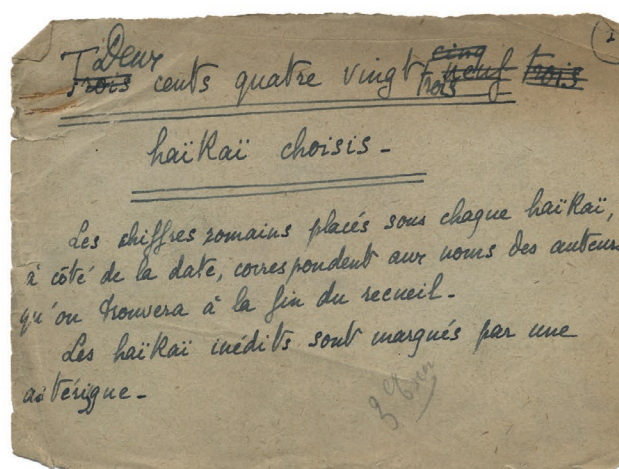 Deux
Trois cents quatre vingt cinq neuf trois
trois
haïkaï choisis -
Les chiffres romains placés sous chaque haïkaï,
à côté de la date, correspondent aux noms des auteurs
qu'on trouvera à la fin du recueil -
Les haïkaï inédits sont marqués par une
astérique -